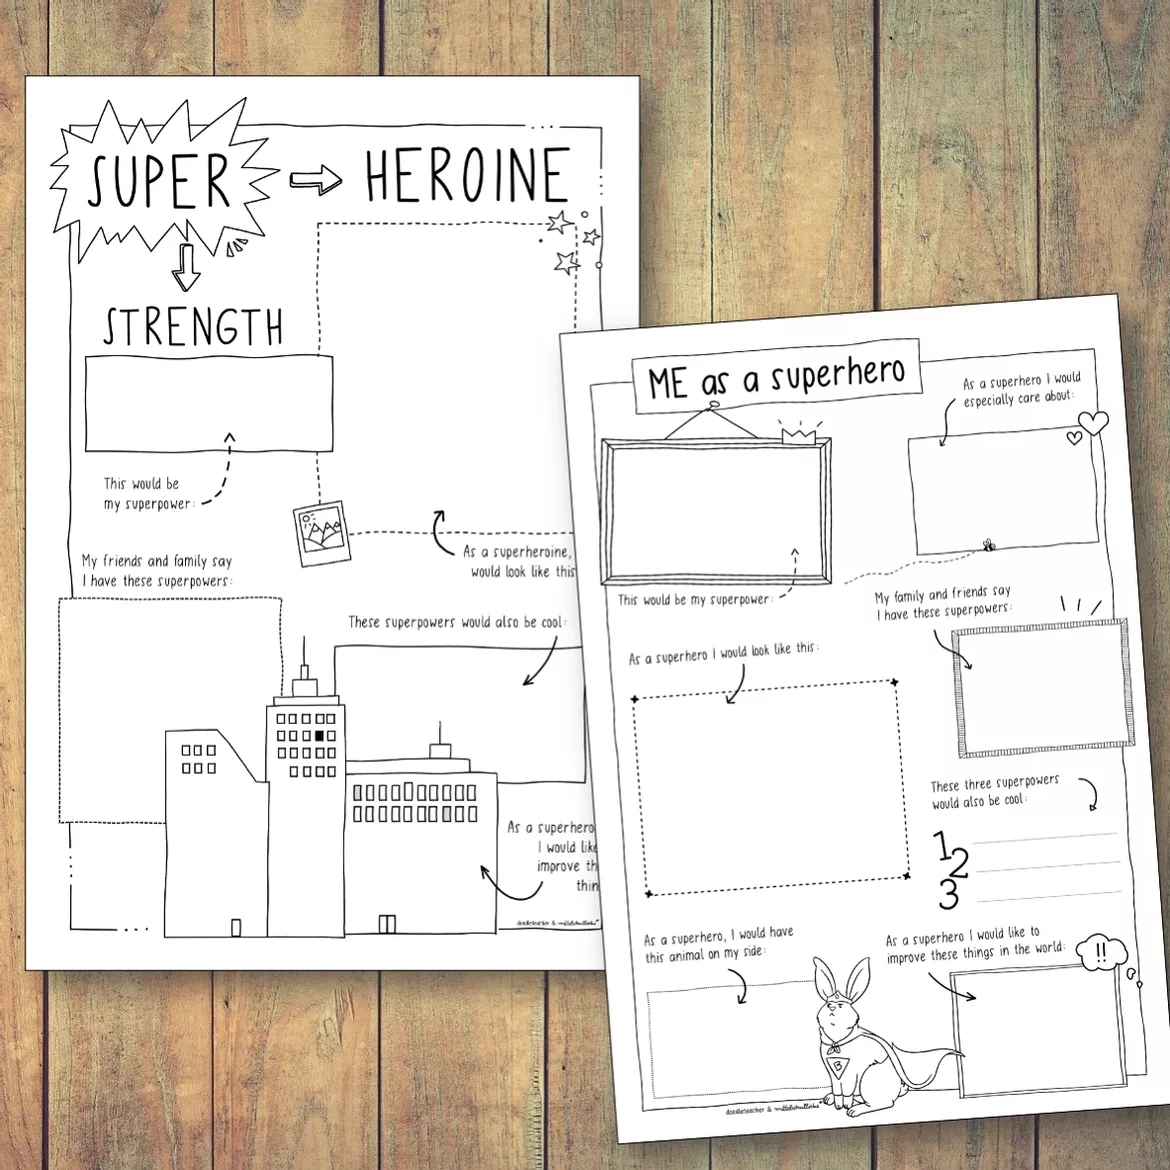 SUPER
HEROINE
STRENGTH
This would be
my superpower:
As a superheroine,
would look like this
My friends and family say
I have these superpowers:
These superpowers would also be cool:
As a superhero
I would like
improve th
thin
doodleteacher & mittelschulliebe
ME as a superhero
As a superhero I would
especially care about:
This would be my superpower:
My family and friends say
I have these superpowers:
As a superhero I would look like this:
These three superpowers
would also be cool:
1
2
3
As a superhero, I would have
this animal on my side:
As a superhero I would like to
improve these things in the world:
!!
B
doodleteacher & mittelschulliebe